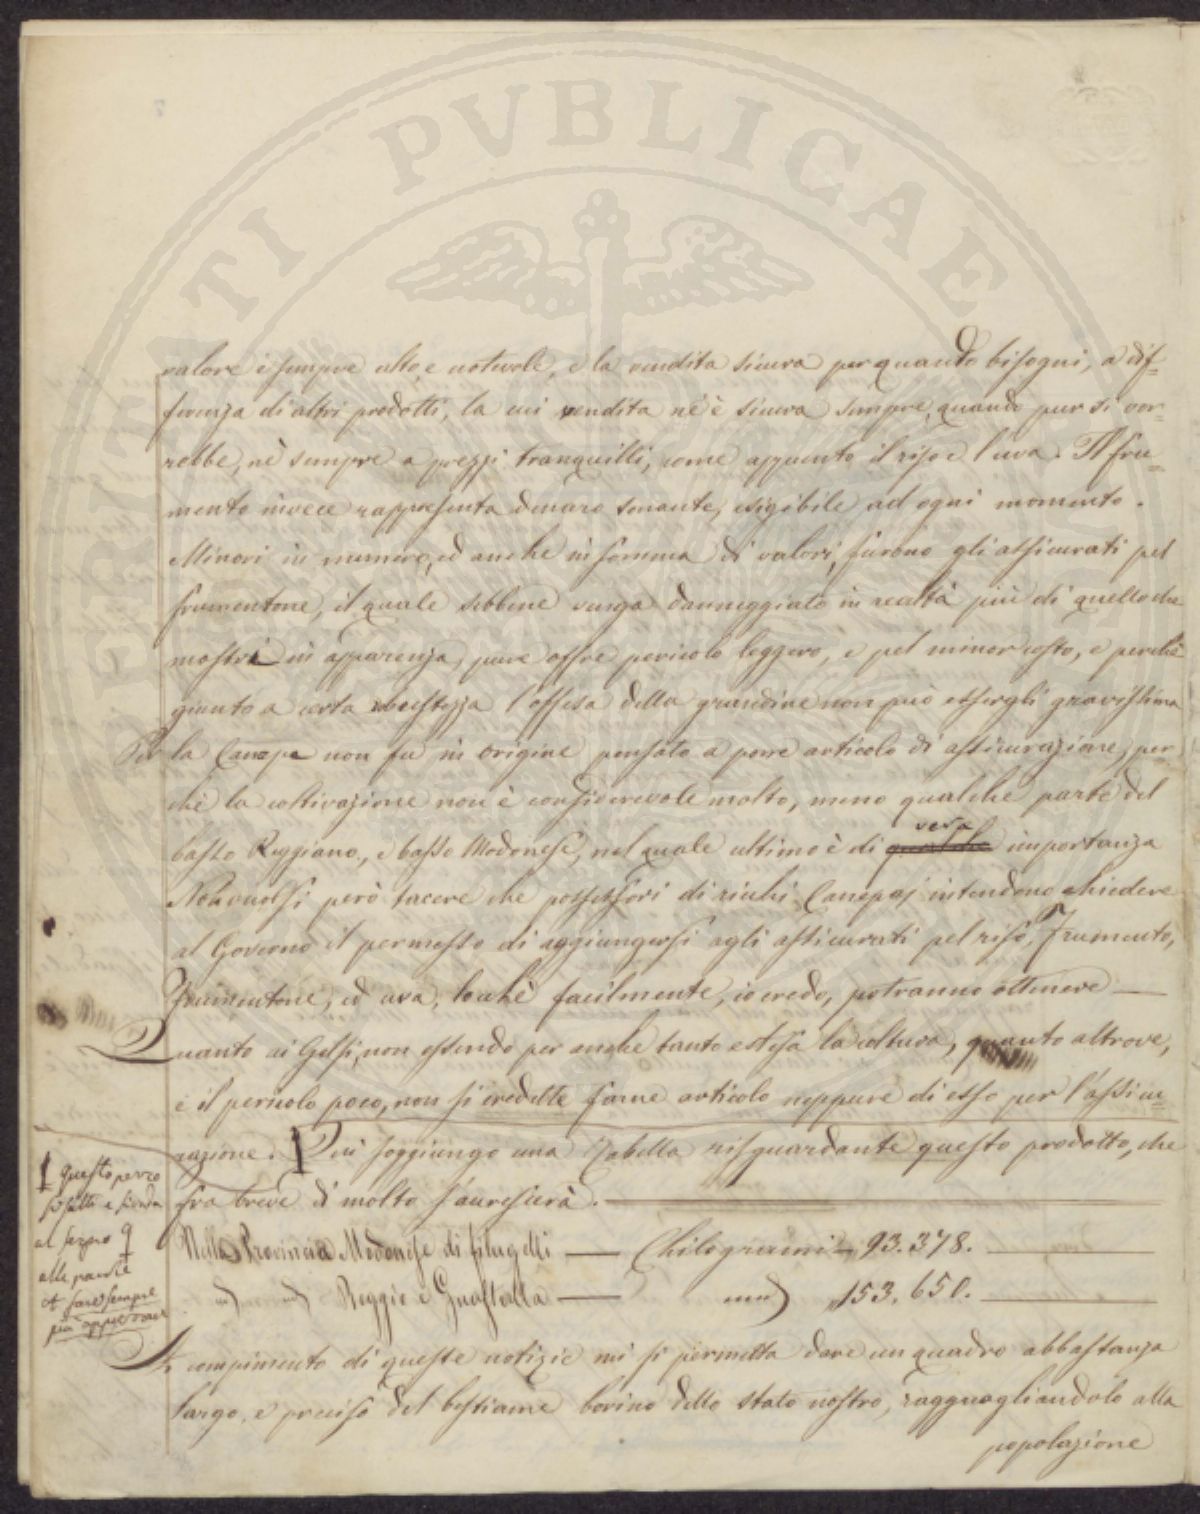 PERITATI PVBLICAE
valore è sempre alto, e notevole, e la vendita sicura per quanto bisogni, a dif=
ferenza di altri prodotti, la cui vendita nè è sicura sempre, quando pur si vor=
rebbe, nè sempre a prezzi tranquilli, come appunto il riso e l'uva. Il fru=
mento invece rappresenta denaro sonante, esigibile ad ogni momento.
Minori in numero, ed anche in somma di valori, furono gli assicurati pel
frumentone, il quale sebbene venga danneggiato in realtà più di quello che
mostri in apparenza, pure offre pericolo leggero, e pel minor costo, e perchè
giunto a certa altezza l'offesa della grandine non può essergli gravissima
Per la Canepa non fu in origine pensato a porre articolo di assicurazione, per
chè la coltivazione non è considerevole molto, meno qualche parte del
basso Reggiano, e basso Modonese, nel quale ultimo è di qualche vera importanza
Non vuolsi però tacere che possessori di ricchi Canepaj intendono chiedere
al Governo il permesso di aggiungersi agli assicurati pel riso, Frumento,
Frumentone, ed uva, lochè facilmente, io credo, potranno ottenere —
Quanto ai Gelsi, non essendo per anche tanto estesa la coltura, quanto altrove,
e il pericolo poco, non si credette farne articolo neppure di esso per l'assicu=
razione. Qui soggiungo una Tabella risguardante questo prodotto, che
fra breve di molto s'accrescerà.
Questo pezzo
al segno
alle parole
et farsi sempre
più
Nella Provincia Modonese di filugelli — Chilogrammi — 93.378.
" " Reggio e Guastalla — " 153.650.
A compimento di queste notizie mi si permetta dare un quadro abbastanza
largo, e preciso del bestiame bovino dello stato nostro, ragguagliandolo alla
popolazione